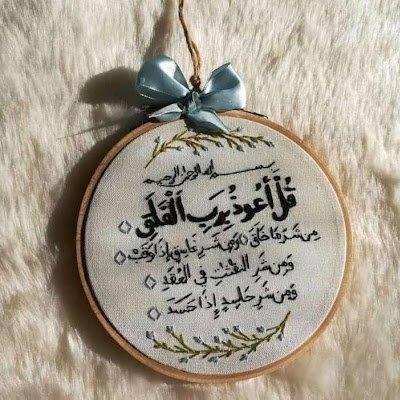 بسم الله الرحمن الرحيم
قُلْ أَعُوذُ بِرَبِّ الْفَلَقِ
مِن شَرِّ مَا خَلَقَ وَمِن شَرِّ غَاسِقٍ إِذَا وَقَبَ
وَمِن شَرِّ النَّفَّٰثَٰتِ فِي الْعُقَدِ
وَمِن شَرِّ حَاسِدٍ إِذَا حَسَدَ